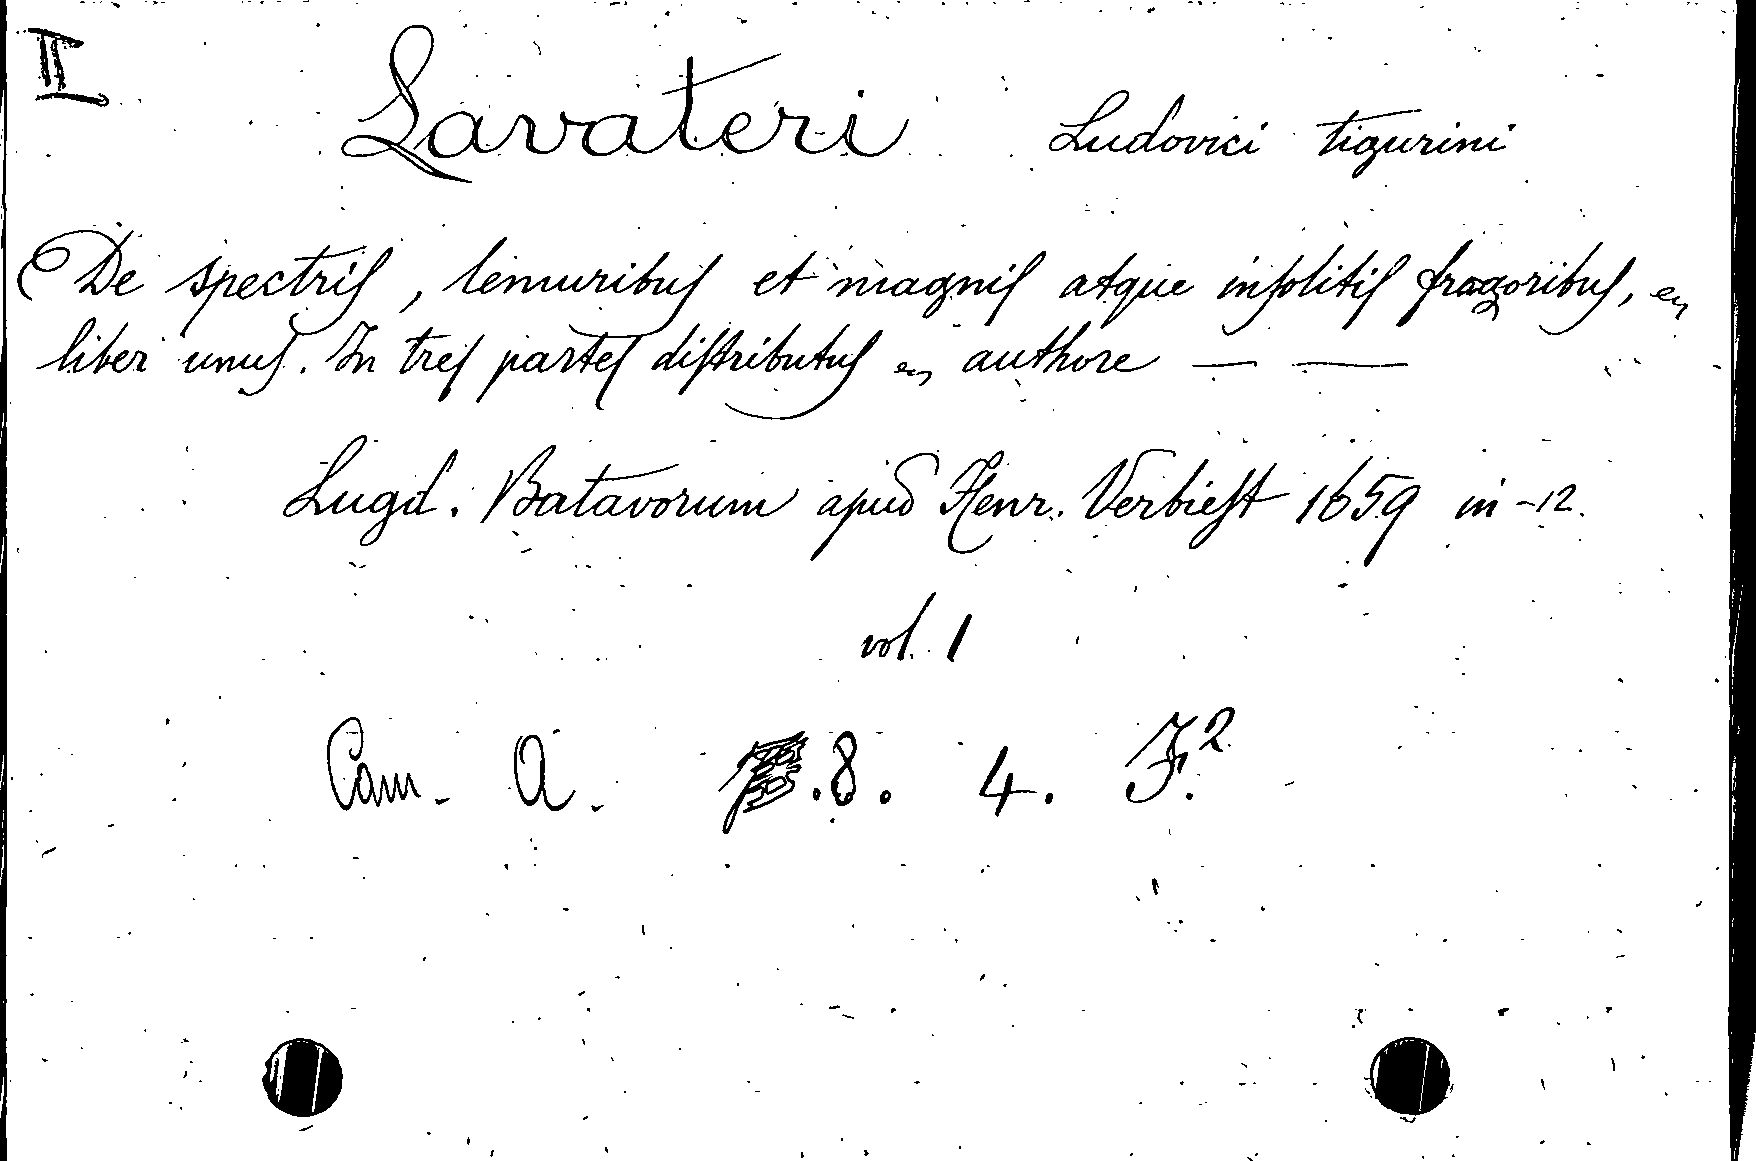 II
Lavateri Ludovici tigurini
De spectris, lemuribus et magnis atque insolitis fragoribus,
liber unus. In tres partes distributus authore — —
Lugd. Batavorum apud Henr. Verbiest 1659 in-12.
vol. 1
Cam. A. .8. 4. F.2